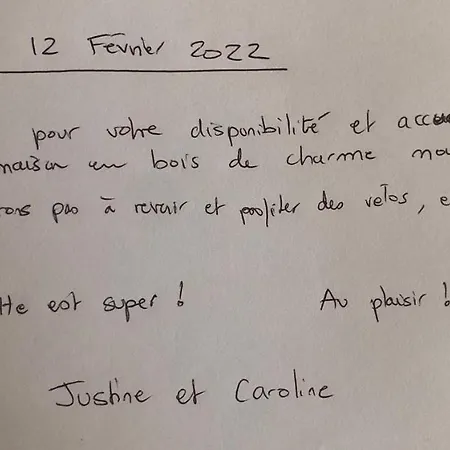 12 Février 2022
pour votre disponibilité et accue
maison en bois de charme no
ons pas à revenir et profiter des velos, e
tte est super ! Au plaisir !
Justine et Caroline